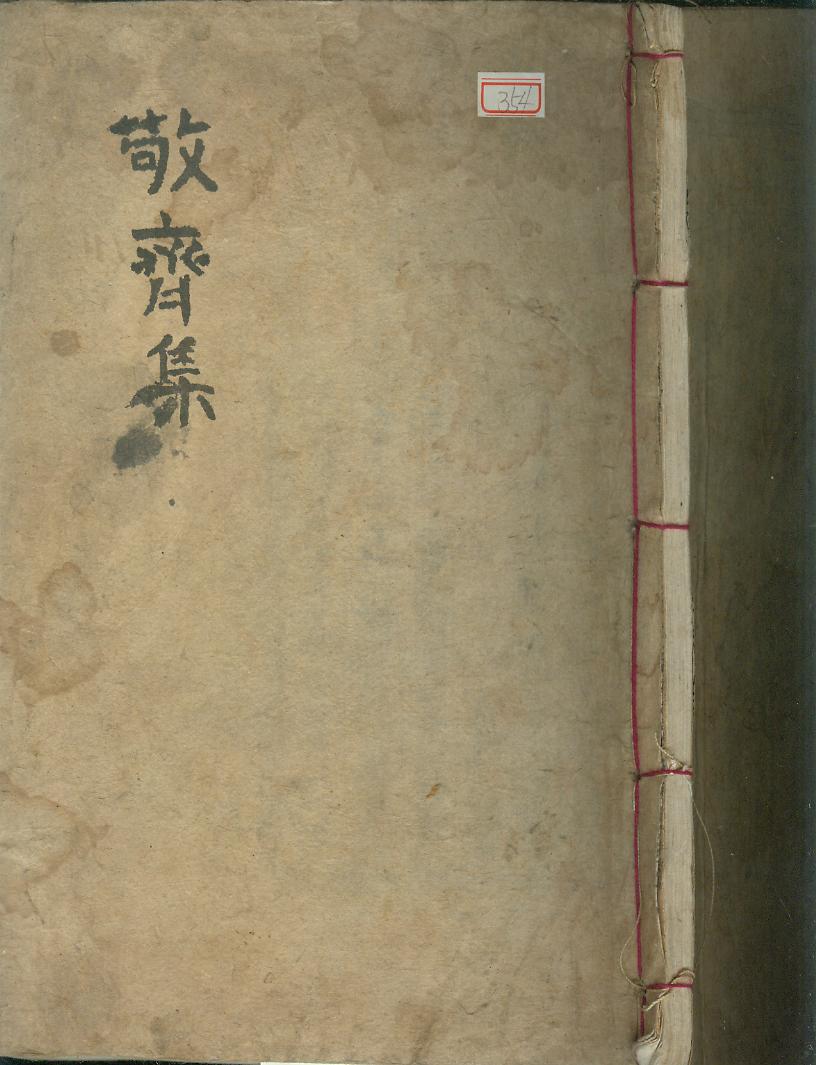 敬齊集
354